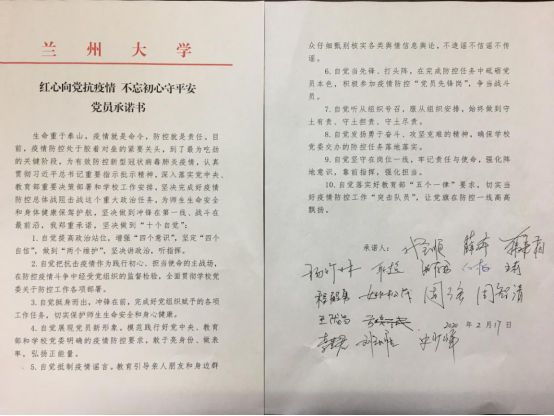 兰州大学
红心向党抗疫情 不忘初心守平安
党员承诺书
生命重于泰山，疫情就是命令，防控就是责任。目
前，疫情防控处于胶着对垒的紧要关头，到了最为吃劲
的关键阶段。为有效防控新型冠状病毒肺炎疫情，认真
贯彻习近平总书记重要指示批示精神，深入落实党中央、
教育部重要决策部署和学校工作安排，坚决完成好疫情
防控总体战阻击战这个重大政治任务，为师生生命安全
和身体健康保驾护航，坚决做到冲锋在第一线、战斗在
最前沿，我郑重承诺，坚决做到“十个自觉”：
1.自觉提高政治站位，增强“四个意识”，坚定“四个
自信”，做到“两个维护”，坚决讲政治、听指挥。
2.自觉把抗击疫情作为践行初心、担当使命的主战场，
在防控疫情斗争中经受党组织的监督检验，全面贯彻学校
党委关于防控工作各项部署。
3.自觉挺身而出，冲锋在前，完成好党组织赋予的各项
工作任务，切实保护师生生命安全和身心健康。
4.自觉展现党员新形象，模范践行好党中央、教育
部和学校党委明确的疫情防控要求，敢于亮身份、做表
率，弘扬正能量。
5.自觉抵制疫情谣言，教育引导亲人朋友和身边群
众仔细甄别核实各类舆情信息舆论，不造谣不信谣不传
谣。
6.自觉当先锋、打头阵，在完成防控任务中砥砺党
员本色，积极参加疫情防控“党员先锋岗”，争当战斗
员。
7.自觉听从组织号召，服从组织安排，始终做到守
土有责、守土担责、守土尽责。
8.自觉发扬勇于奋斗、攻坚克难的精神，确保学校
党委交办的防控任务落地落实。
9.自觉坚守在岗位一线，牢记责任与使命，强化阵
地意识，靠前指挥，强化担当。
10.自觉落实好教育部“五个一律”要求，切实当
好疫情防控工作“突击队员”，让党旗在防控一线高高
飘扬。
承诺人：
周智清
2020年2月17日